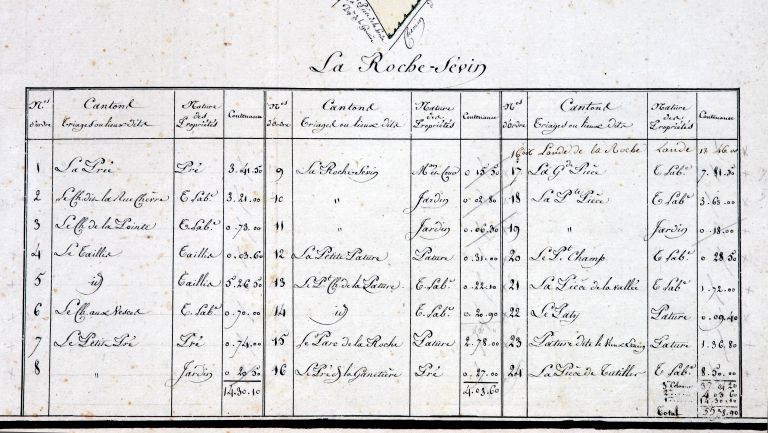 La Roche-Sévin
Nos d'ordre Cantons Triages ou lieux dits Nature des Propriétés Contenance
1 La Prée Pré 3.41.50
2 Le Ch. dit la Rue Chèvre T. Labe. 3.21.00
3 Le Ch. de la Pointe T. Labe. 0.73.00
4 Le Taillis Taillis 0.03.60
5 id Taillis 5.26.50
6 Le Ch. aux T. Labe. 0.70.00
7 Le Petit Pré Pré 0.74.00
8 " Jardin 0.20.50
14.30.10
Nos d'ordre Cantons Triages ou lieux dits Nature des Propriétés Contenance
9 La Roche-Sévin Mon et Cour 0.15.50
10 " Jardin 0.02.80
11 " Jardin 0.06.30
12 La Petite Pature Pature 0.31.00
13 Le Pt Ch. de la Pature T. Labe. 0.22.10
14 id T. Labe. 0.20.90
15 Le Parc de la Roche Pature 2.78.00
16 Le Pré de la Ganetière Pré 0.27.00
4.03.60
Nos d'ordre Cantons Triages ou lieux dits Nature des Propriétés Contenance
16 bis Lande de la Roche Lande 13.46.00
17 La Gde Pièce T. Labe. 7.81.50
18 La Pte Pièce T. Labe. 3.60.00
19 " Jardin 0.18.00
20 Le Pt Champ T. Labe. 0.28.50
21 La Pièce de la Vallée T. Labe. 1.72.00
22 Le Paty Pature 0.09.40
23 Pature dite le Vieux Pature 1.36.80
24 La Pièce de T. Labe. 8.50.00
3e Colonne 37.01.20
2e 4.03.60
14.30.10
Total